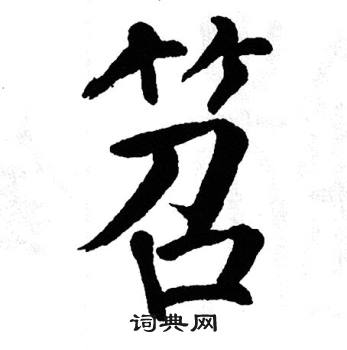 笤
词典网